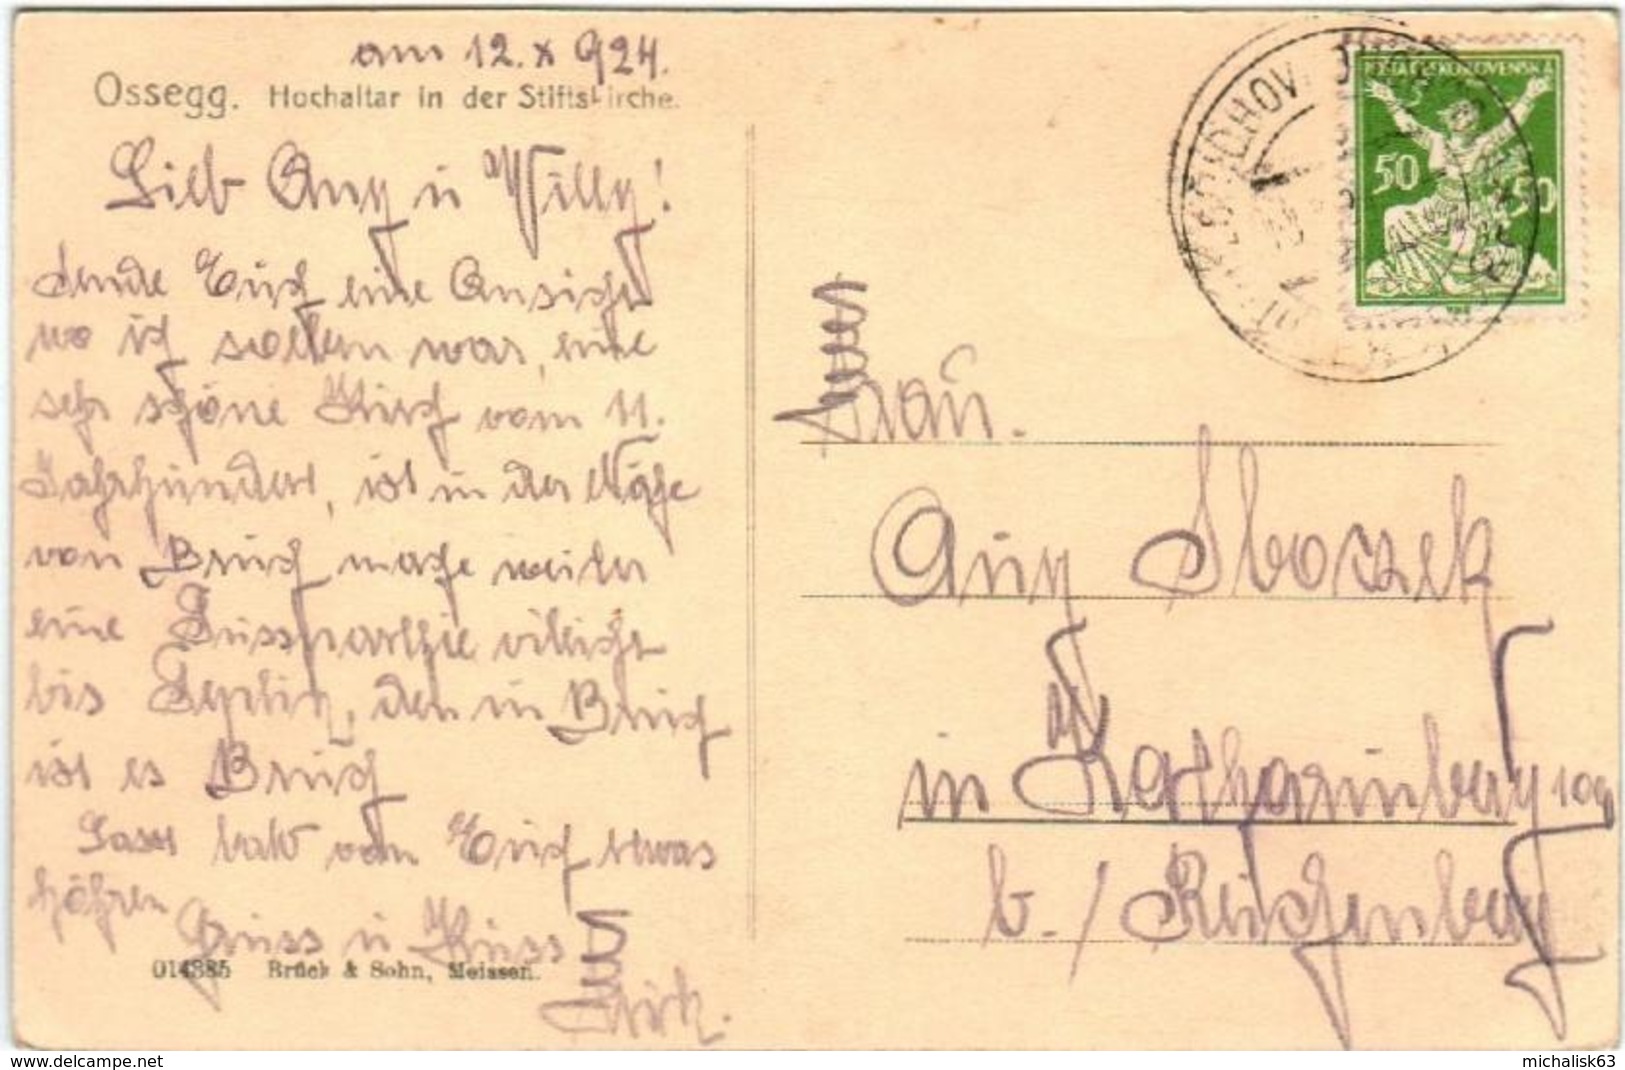 am 12. X 924.
Ossegg. Hochaltar in der Stiftskirche.
Lieb Anny u Willy!
sende Euch eine Ansicht
wo ich selten war, eine
sehr schöne Kirch vom 11.
Jahrhundert, ist in der Nähe
von Bruch mache weiter
eine Fussparthie vileicht
bis
den in Bruch
ist es Bruch
Lasst bald von Euch etwas
höhren
Gruss u Kuss
014385 Brück & Sohn, Meissen.
POŠTA ČESKOSLOVENSKÁ
50 50
Frau.
Anny
in Katharinberg 109
b./ Reichenberg
www.delcampe.net
michalisk63